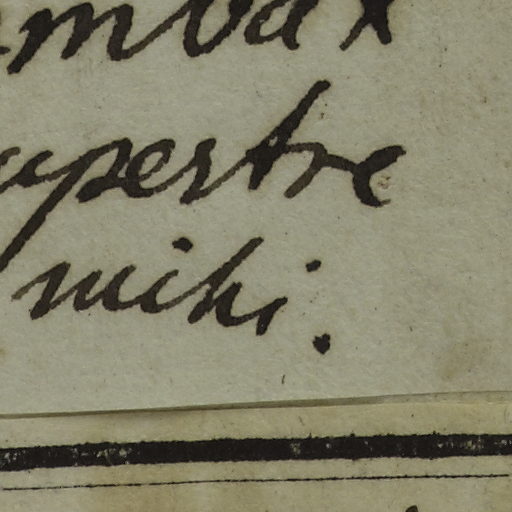 mbax
upestre
mihi.